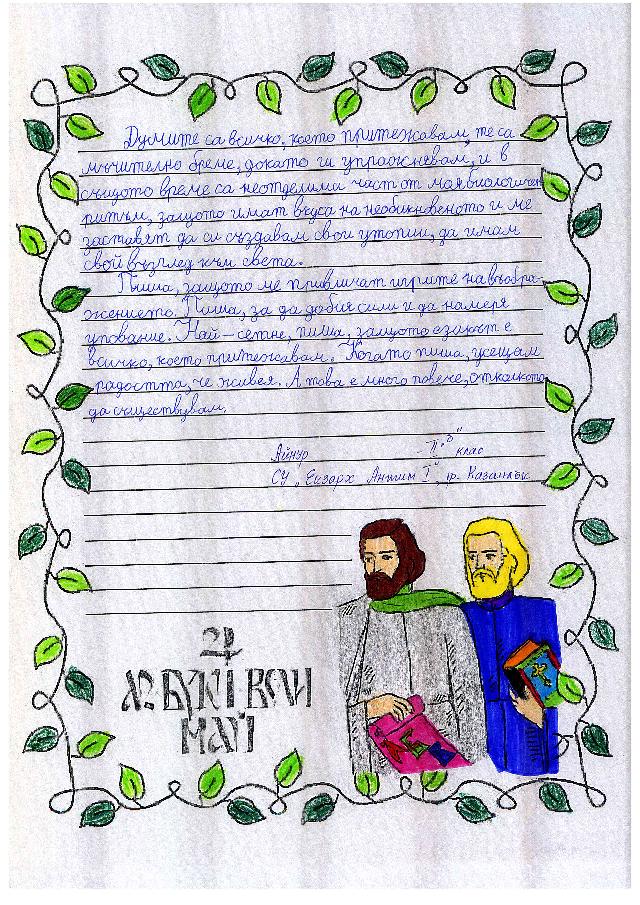 Думите са всичко, което притежавам, те са
мъчително бреме, докато ги упражнявам, и в
същото време са неотделима част от моя биологичен
ритъм, защото имат вкуса на необикновеното и ме
заставят да си създавам свои утопии, да имам
свой възглед към света.
Пиша, защото ме привличат игрите на въобра-
жението. Пиша, за да добия сили и да намеря
упование. Най-сетне, пиша, защото езикът е
всичко, което притежавам. Когато пиша, усещам
радостта, че живея. А това е много повече, отколкото
да съществувам.
Айнур - клас
СУ „Екзарх Антим I", гр. Казанлък
24
МАЙ